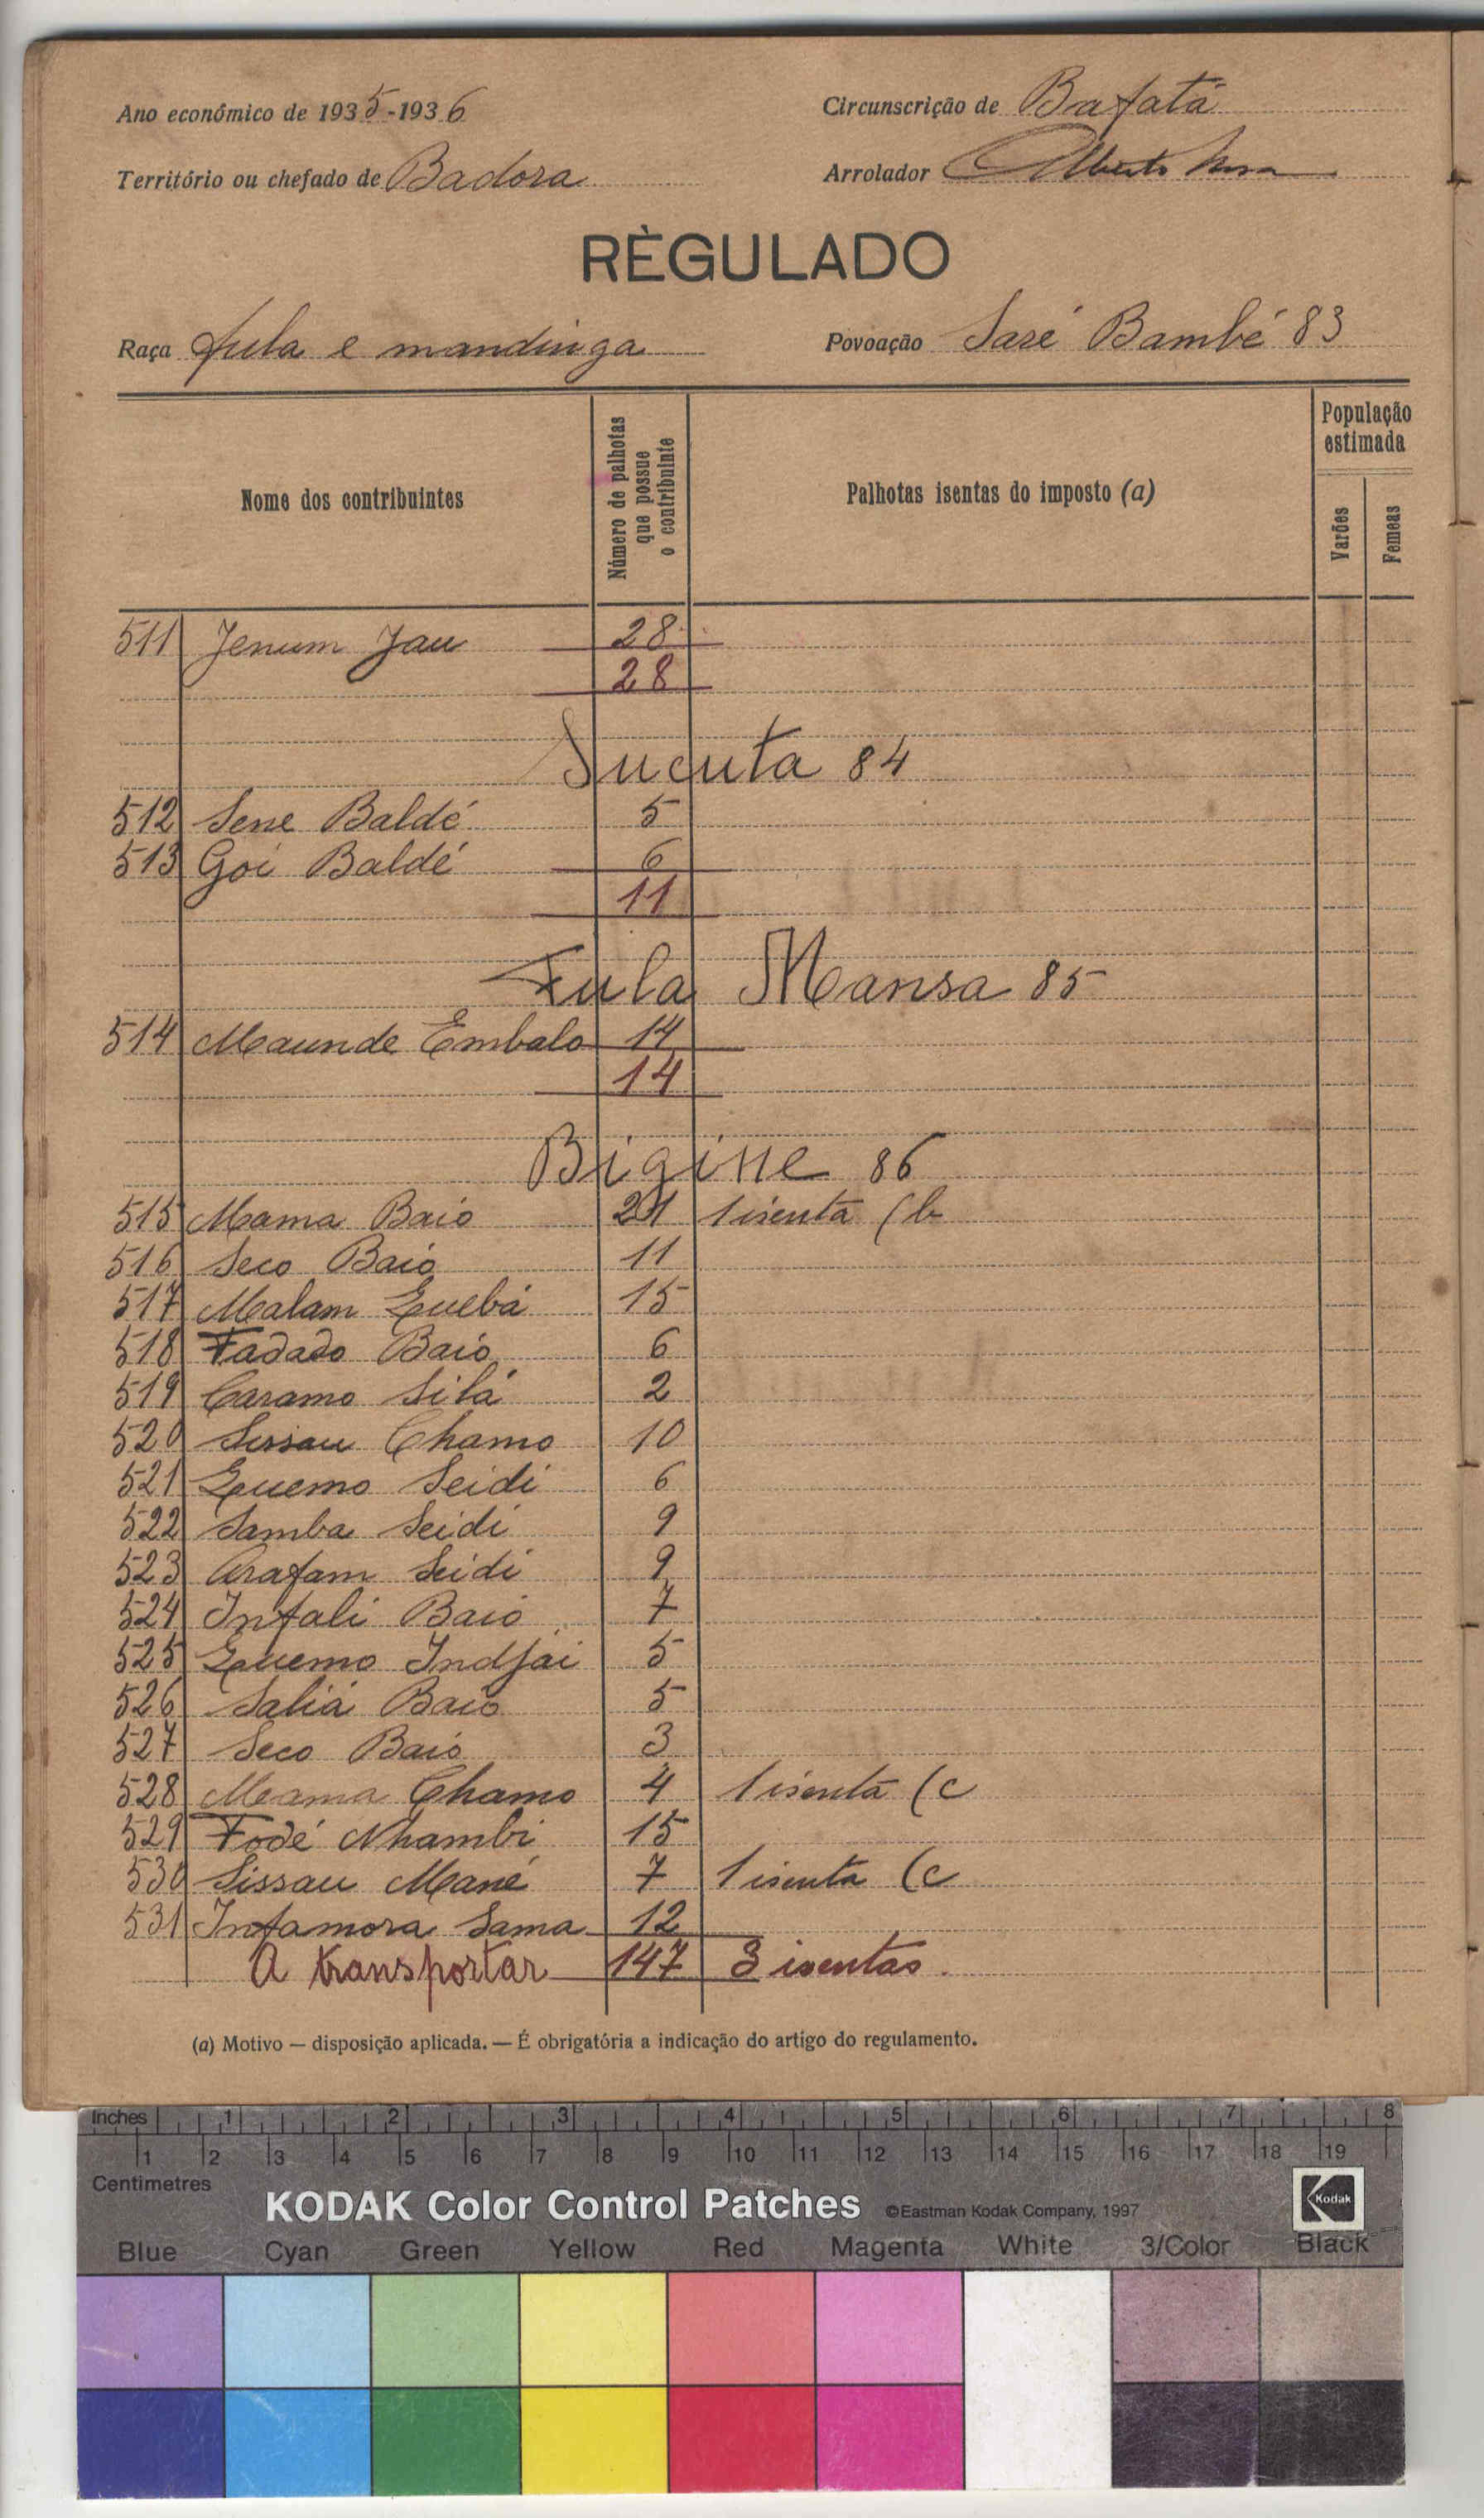 Ano económico de 1935-1936
Circunscrição de Bafatá
Território ou chefado de Badora
Arrolador Alberto
RÈGULADO
Raça fula e mandinga
Povoação Saré Bambé 83
Nome dos contribuintes
Número de palhotas que possue o contribuinte
Palhotas isentas do imposto (a)
População estimada
Varões
Femeas
511 Jenum Jau 28
28
Sucuta 84
512 Sene Baldé 5
513 Goi Baldé 6
11
Fula Mansa 85
514 Maunde Embalo 14
14
Bigine 86
515 Mama Baio 21 1 isenta (b
516 Seco Baió 11
517 Malam Quebá 15
518 Fadado Baió 6
519 Caramo Silá 2
520 Sissau Chamo 10
521 Quemo Seidi 6
522 Samba Seidi 9
523 Arafam Seidi 9
524 Infali Baió 7
525 Quemo Indjai 5
526 Saliá Baió 5
527 Seco Baió 3
528 Mama Chamo 4 1 isenta (c
529 Fodé Nhambi 15
530 Sissau Mané 7 1 isenta (c
531 Infamora Sama 12
A transportar 147 3 isentas.
(a) Motivo — disposição aplicada. — É obrigatória a indicação do artigo do regulamento.
Inches 1 2 3 4 5 6 7 8
1 2 3 4 5 6 7 8 9 10 11 12 13 14 15 16 17 18 19
Centimetres
KODAK Color Control Patches ©Eastman Kodak Company, 1997 Kodak
Blue Cyan Green Yellow Red Magenta White 3/Color Black